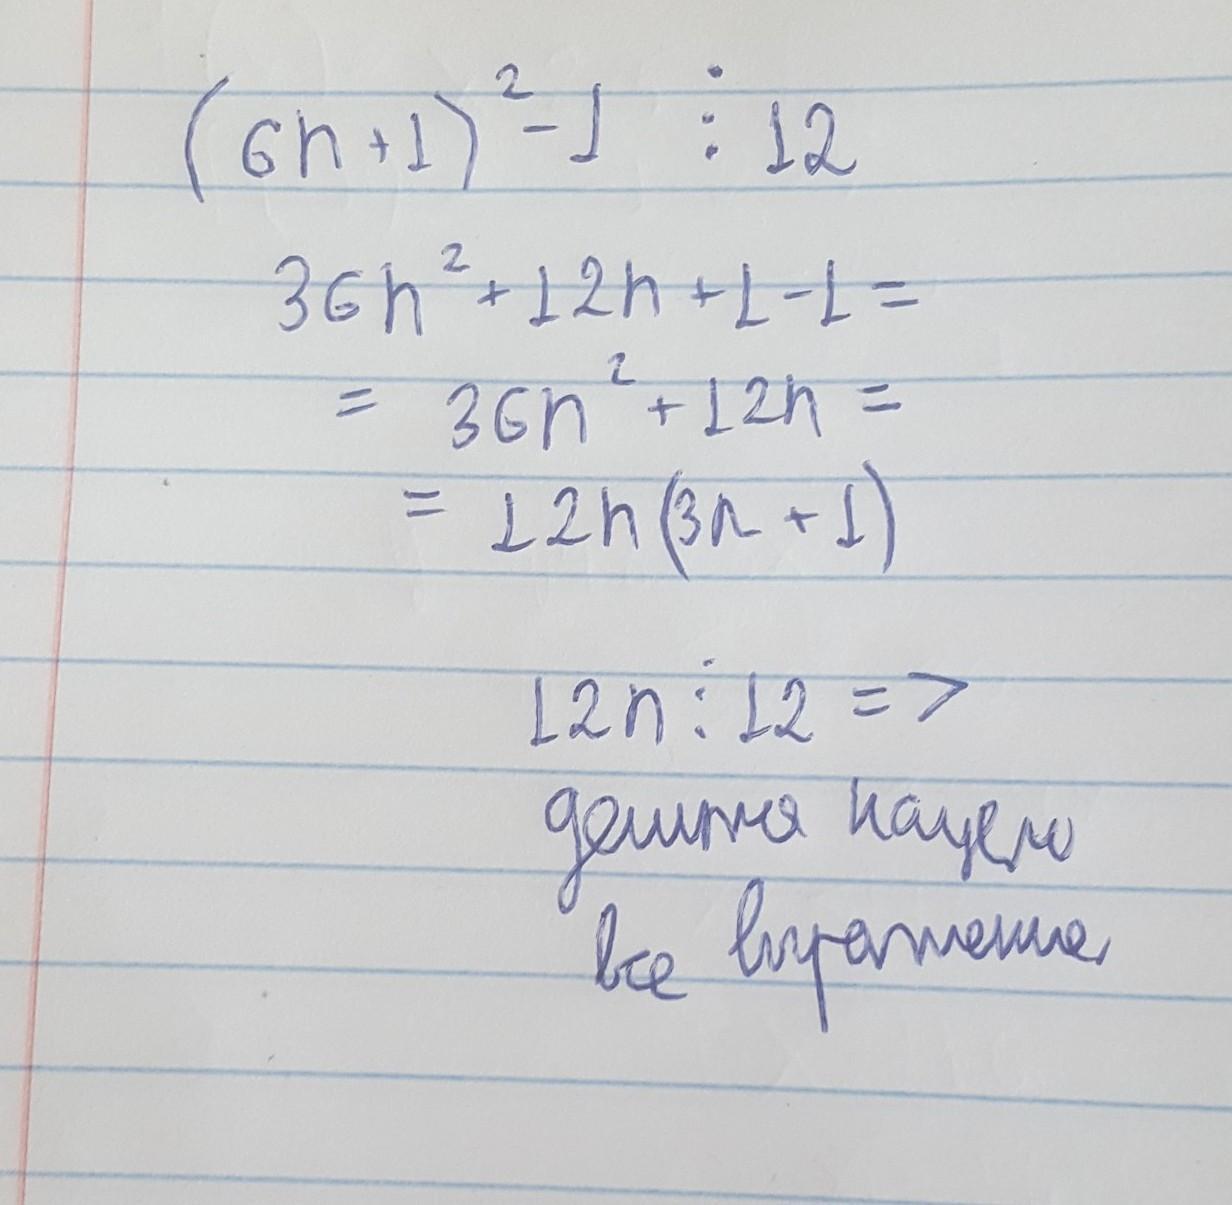 (6n+1)²-1 ⋮ 12
36n²+12n+1-1=
= 36n²+12n=
= 12n(3n+1)
12n⋮12 =>
делится нацело
все выражение